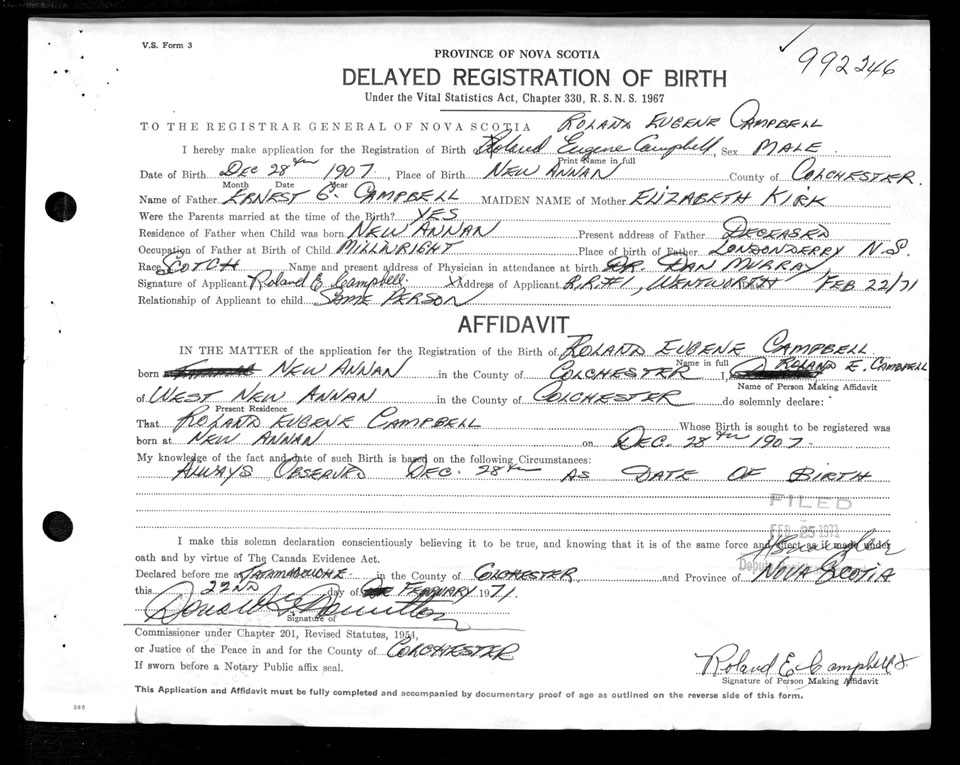 V.S. Form 3
992246
PROVINCE OF NOVA SCOTIA
DELAYED REGISTRATION OF BIRTH
Under the Vital Statistics Act, Chapter 330, R.S.N.S. 1967
TO THE REGISTRAR GENERAL OF NOVA SCOTIA ROLAND EUGENE CAMPBELL
I hereby make application for the Registration of Birth of Roland Eugene Campbell, Sex MALE.
Print Name in full
Date of Birth DEC 28th 1907, Place of Birth NEW ANNAN County of COLCHESTER.
Month Date Year
Name of Father ERNEST G. CAMPBELL MAIDEN NAME of Mother ELIZABETH KIRK
Were the Parents married at the time of the Birth? YES
Residence of Father when Child was born NEW ANNAN Present address of Father DECEASED
Occupation of Father at Birth of Child MILLWRIGHT Place of birth of Father LONDONDERRY N.S.
Race SCOTCH Name and present address of Physician in attendance at birth DR. DAN MURRAY
Signature of Applicant Roland E Campbell. Address of Applicant R.R.#1, WENTWORTH FEB 22/71
Relationship of Applicant to child SAME PERSON
AFFIDAVIT
IN THE MATTER of the application for the Registration of the Birth of ROLAND EUGENE CAMPBELL
Name in full
born NEW ANNAN in the County of COLCHESTER I, ROLAND E. CAMPBELL
Name of Person Making Affidavit
of WEST NEW ANNAN in the County of COLCHESTER do solemnly declare:
Present Residence
That ROLAND EUGENE CAMPBELL Whose Birth is sought to be registered was
born at NEW ANNAN on DEC. 28th 1907.
My knowledge of the fact and date of such Birth is based on the following Circumstances:
ALWAYS OBSERVED DEC. 28th AS DATE OF BIRTH
FILED
FEB 25 1971
I make this solemn declaration conscientiously believing it to be true, and knowing that it is of the same force and effect as if made under
oath and by virtue of The Canada Evidence Act.
Deputy
Declared before me at TATAMAGOUCHE in the County of COLCHESTER, and Province of NOVA SCOTIA
this 22ND day of FEBRUARY 1971.
Signature of
Commissioner under Chapter 201, Revised Statutes, 1954,
or Justice of the Peace in and for the County of COLCHESTER
If sworn before a Notary Public affix seal.
Roland E. Campbell
Signature of Person Making Affidavit
This Application and Affidavit must be fully completed and accompanied by documentary proof of age as outlined on the reverse side of this form.